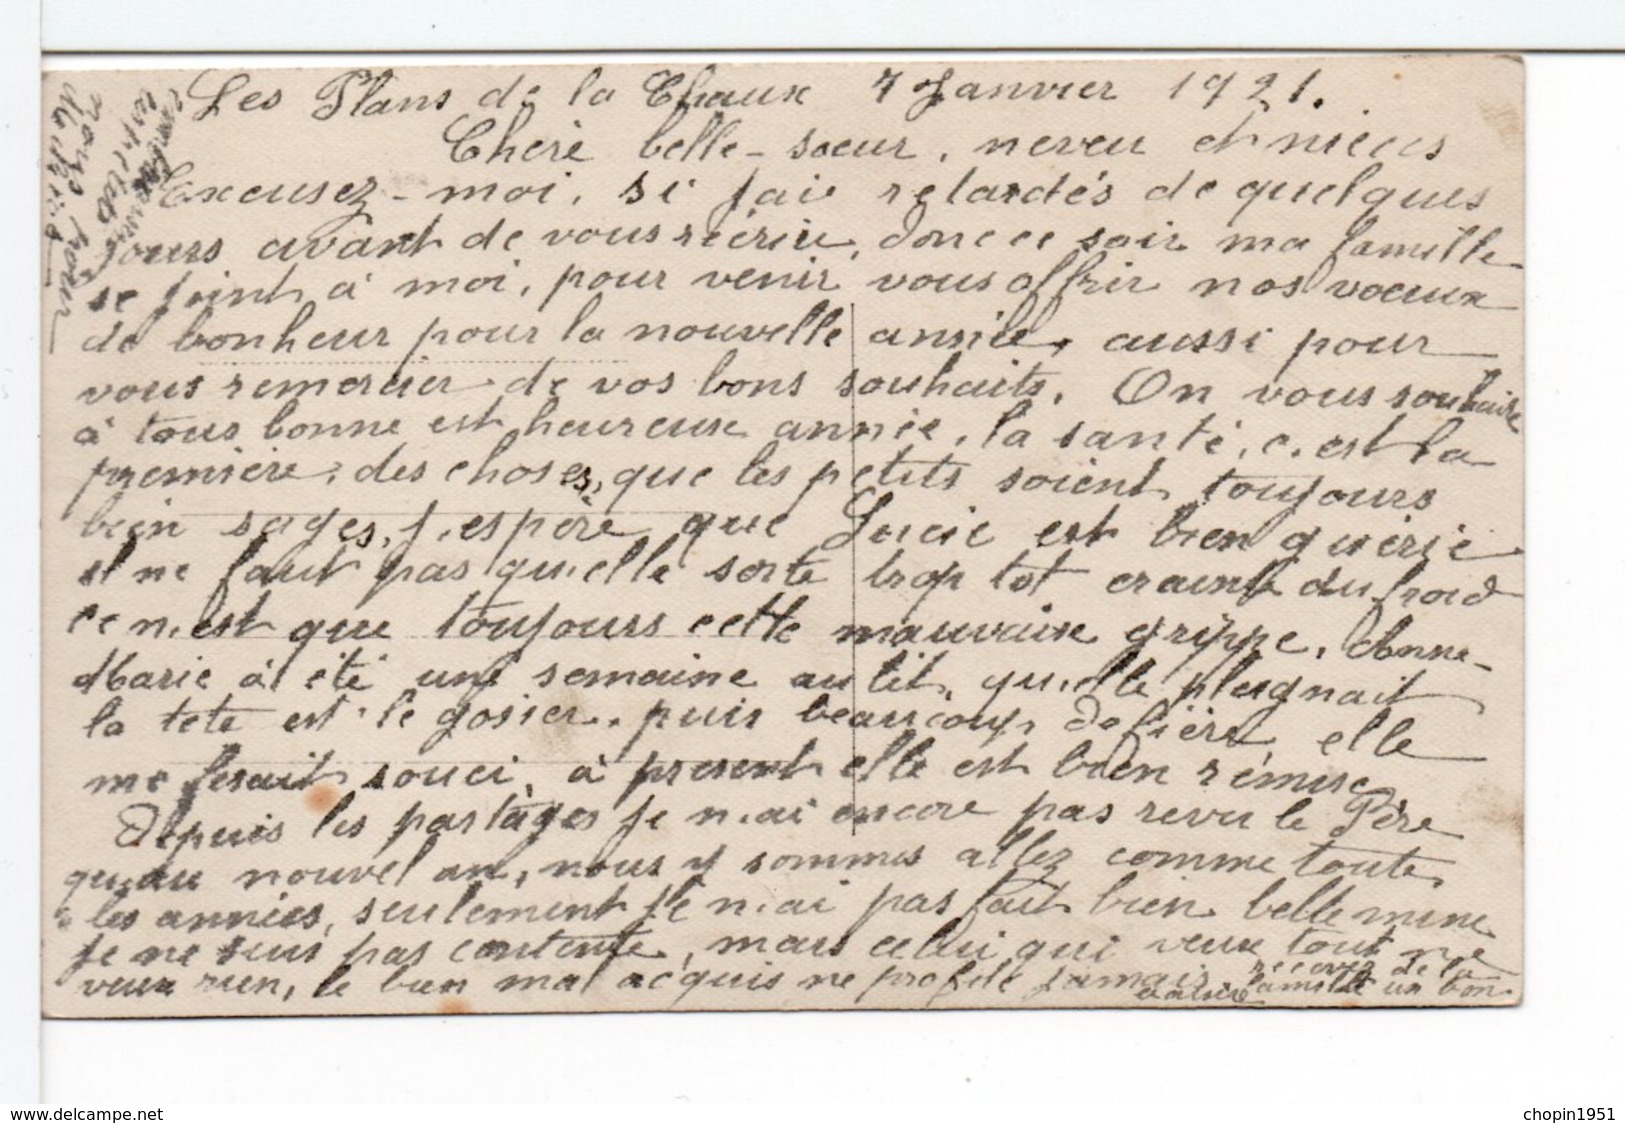 Les Plans de la Chaux 4 Janvier 1921.
Cherè belle-soeur, neveu et nieces
Excusez-moi, si jaie retardés de quelques
jours avant de vous réécrire, donc ce soir ma famille
se joint à moi, pour venir vous offrir nos voeux
de bonheur pour la nouvelle année, aussi pour
vous remercier de vos bons souhaits. On vous souhaite
à tous bonne est heureuse année, la santé, c.est la
première des choses, que les petits soient toujours
bien sages, j.espère que Lucie est bien guérie
il ne faut pas qu.elle sorte trop tot crainte du froid
ce n.est que toujours cette mauvaise grippe, Anne-
Marie à été une semaine au lit, qu.elle pleignait
la tete est le gosier, puis beaucoup de fièvre, elle
me fesait souci, à present elle est bien rémise,
Depuis les partages je n.ai encore pas revu le Père
qu.au nouvel an, nous y sommes allez comme toute
les années, seulement je n.ai pas fait bien belle mine
je ne suis pas contente, mais celui qui veux tout ne
veux rien, le bien mal acquis ne profite jamais,
recever de la
famille un bon
baisé
nous pour